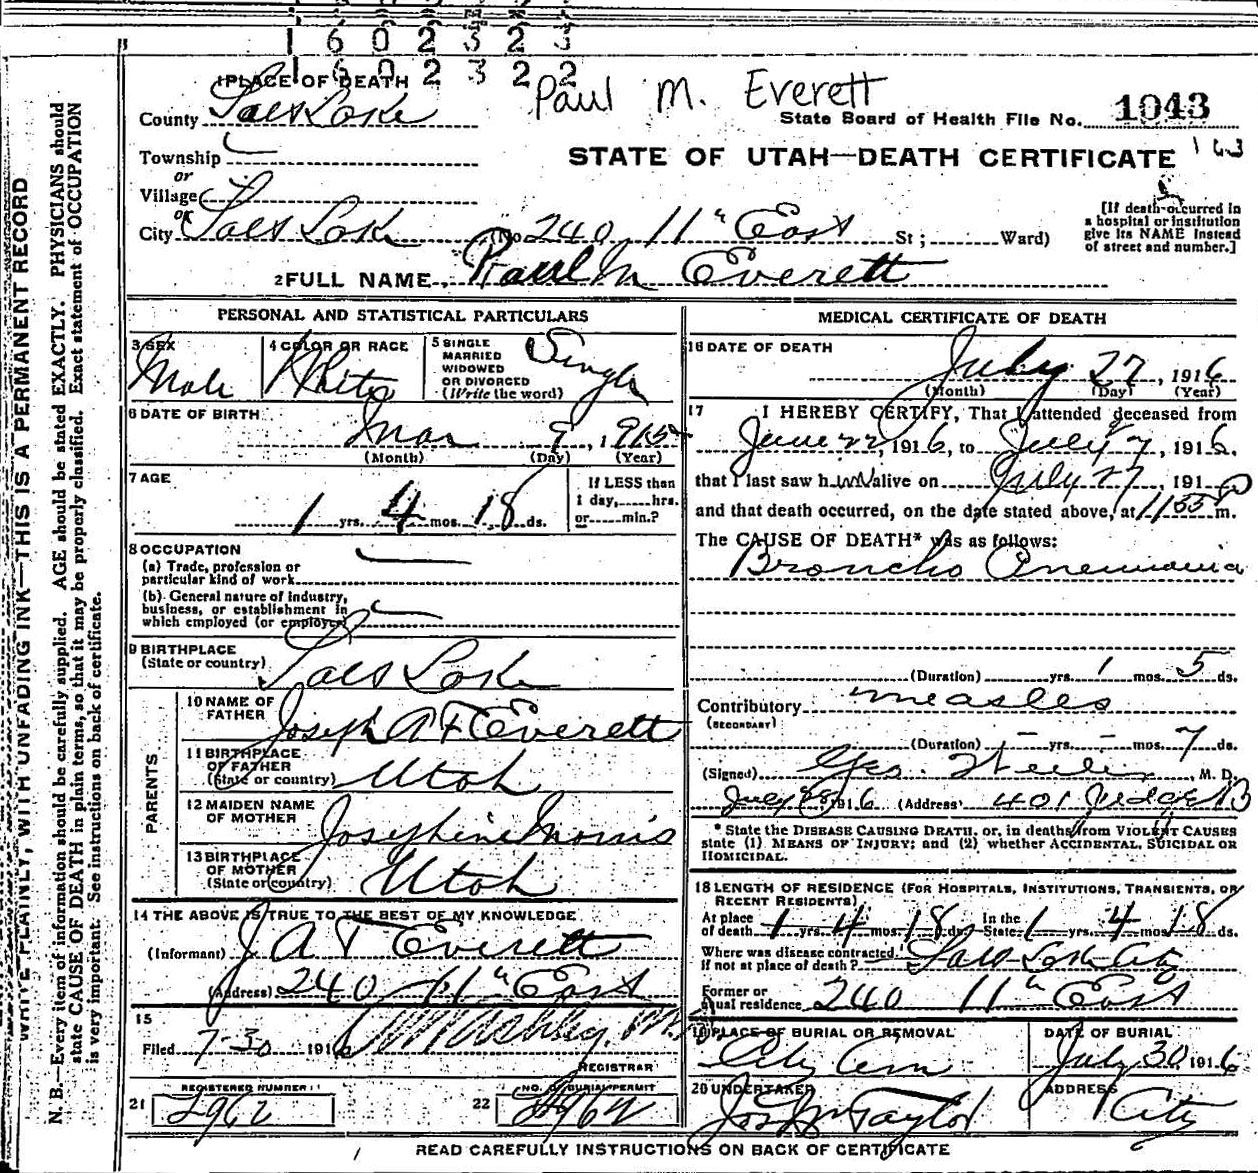 1602323
1602322
Paul M. Everett
1 PLACE OF DEATH
County Salt Lake
State Board of Health File No. 1043
Township
STATE OF UTAH—DEATH CERTIFICATE
or
Village
or
City Salt Lake (No 240 11" East St; Ward)
[If death occurred in
a hospital or institution
give its NAME instead
of street and number.]
2 FULL NAME Paul M Everett
PERSONAL AND STATISTICAL PARTICULARS
3 SEX
Male
4 COLOR OR RACE
White
5 SINGLE
MARRIED
WIDOWED
OR DIVORCED
(Write the word)
Single
6 DATE OF BIRTH
Mar 9, 1915
(Month) (Day) (Year)
7 AGE
1 yrs. 4 mos. 18 ds.
If LESS than
1 day, hrs.
or min.?
8 OCCUPATION
(a) Trade, profession or
particular kind of work
(b) General nature of industry,
business, or establishment in
which employed (or employer)
9 BIRTHPLACE
(State or country) Salt Lake
PARENTS
10 NAME OF
FATHER Joseph A F Everett
11 BIRTHPLACE
OF FATHER
(State or country) Utah
12 MAIDEN NAME
OF MOTHER Josephine Morris
13 BIRTHPLACE
OF MOTHER
(State or country) Utah
14 THE ABOVE IS TRUE TO THE BEST OF MY KNOWLEDGE
(Informant) J A F Everett
(Address) 240 11" East
15
Filed 7-30 1916
REGISTRAR
REGISTERED NUMBER
21 2962
NO. OF BURIAL PERMIT
22 2962
MEDICAL CERTIFICATE OF DEATH
16 DATE OF DEATH
July 27, 1916
(Month) (Day) (Year)
17 I HEREBY CERTIFY, That I attended deceased from
June 22, 1916, to July 27, 1916,
that I last saw him alive on July 27, 191
and that death occurred, on the date stated above, at 1155 m.
The CAUSE OF DEATH* was as follows:
Broncho Pneumonia
(Duration) yrs. 1 mos. 5 ds.
Contributory measles
(SECONDARY)
(Duration) - yrs. - mos. 7 ds.
(Signed) Geo. M. D.
July 28 1916 (Address) 401 Judge B
* State the DISEASE CAUSING DEATH, or, in deaths from VIOLENT CAUSES
state (1) MEANS OF INJURY; and (2) whether ACCIDENTAL, SUICIDAL OR
HOMICIDAL.
18 LENGTH OF RESIDENCE (FOR HOSPITALS, INSTITUTIONS, TRANSIENTS, OR
RECENT RESIDENTS)
At place
of death 1 yrs. 4 mos. 18 ds. In the State 1 yrs. 4 mos. 18 ds.
Where was disease contracted
if not at place of death? Salt Lake City
Former or
usual residence 240 11" East
19 PLACE OF BURIAL OR REMOVAL
City Cem
DATE OF BURIAL
July 30 1916
20 UNDERTAKER
Jos Wm Taylor
ADDRESS
City
READ CAREFULLY INSTRUCTIONS ON BACK OF CERTIFICATE
WRITE PLAINLY, WITH UNFADING INK—THIS IS A PERMANENT RECORD
N. B.—Every item of information should be carefully supplied. AGE should be stated EXACTLY. PHYSICIANS should
state CAUSE OF DEATH in plain terms, so that it may be properly classified. Exact statement of OCCUPATION
is very important. See instructions on back of certificate.